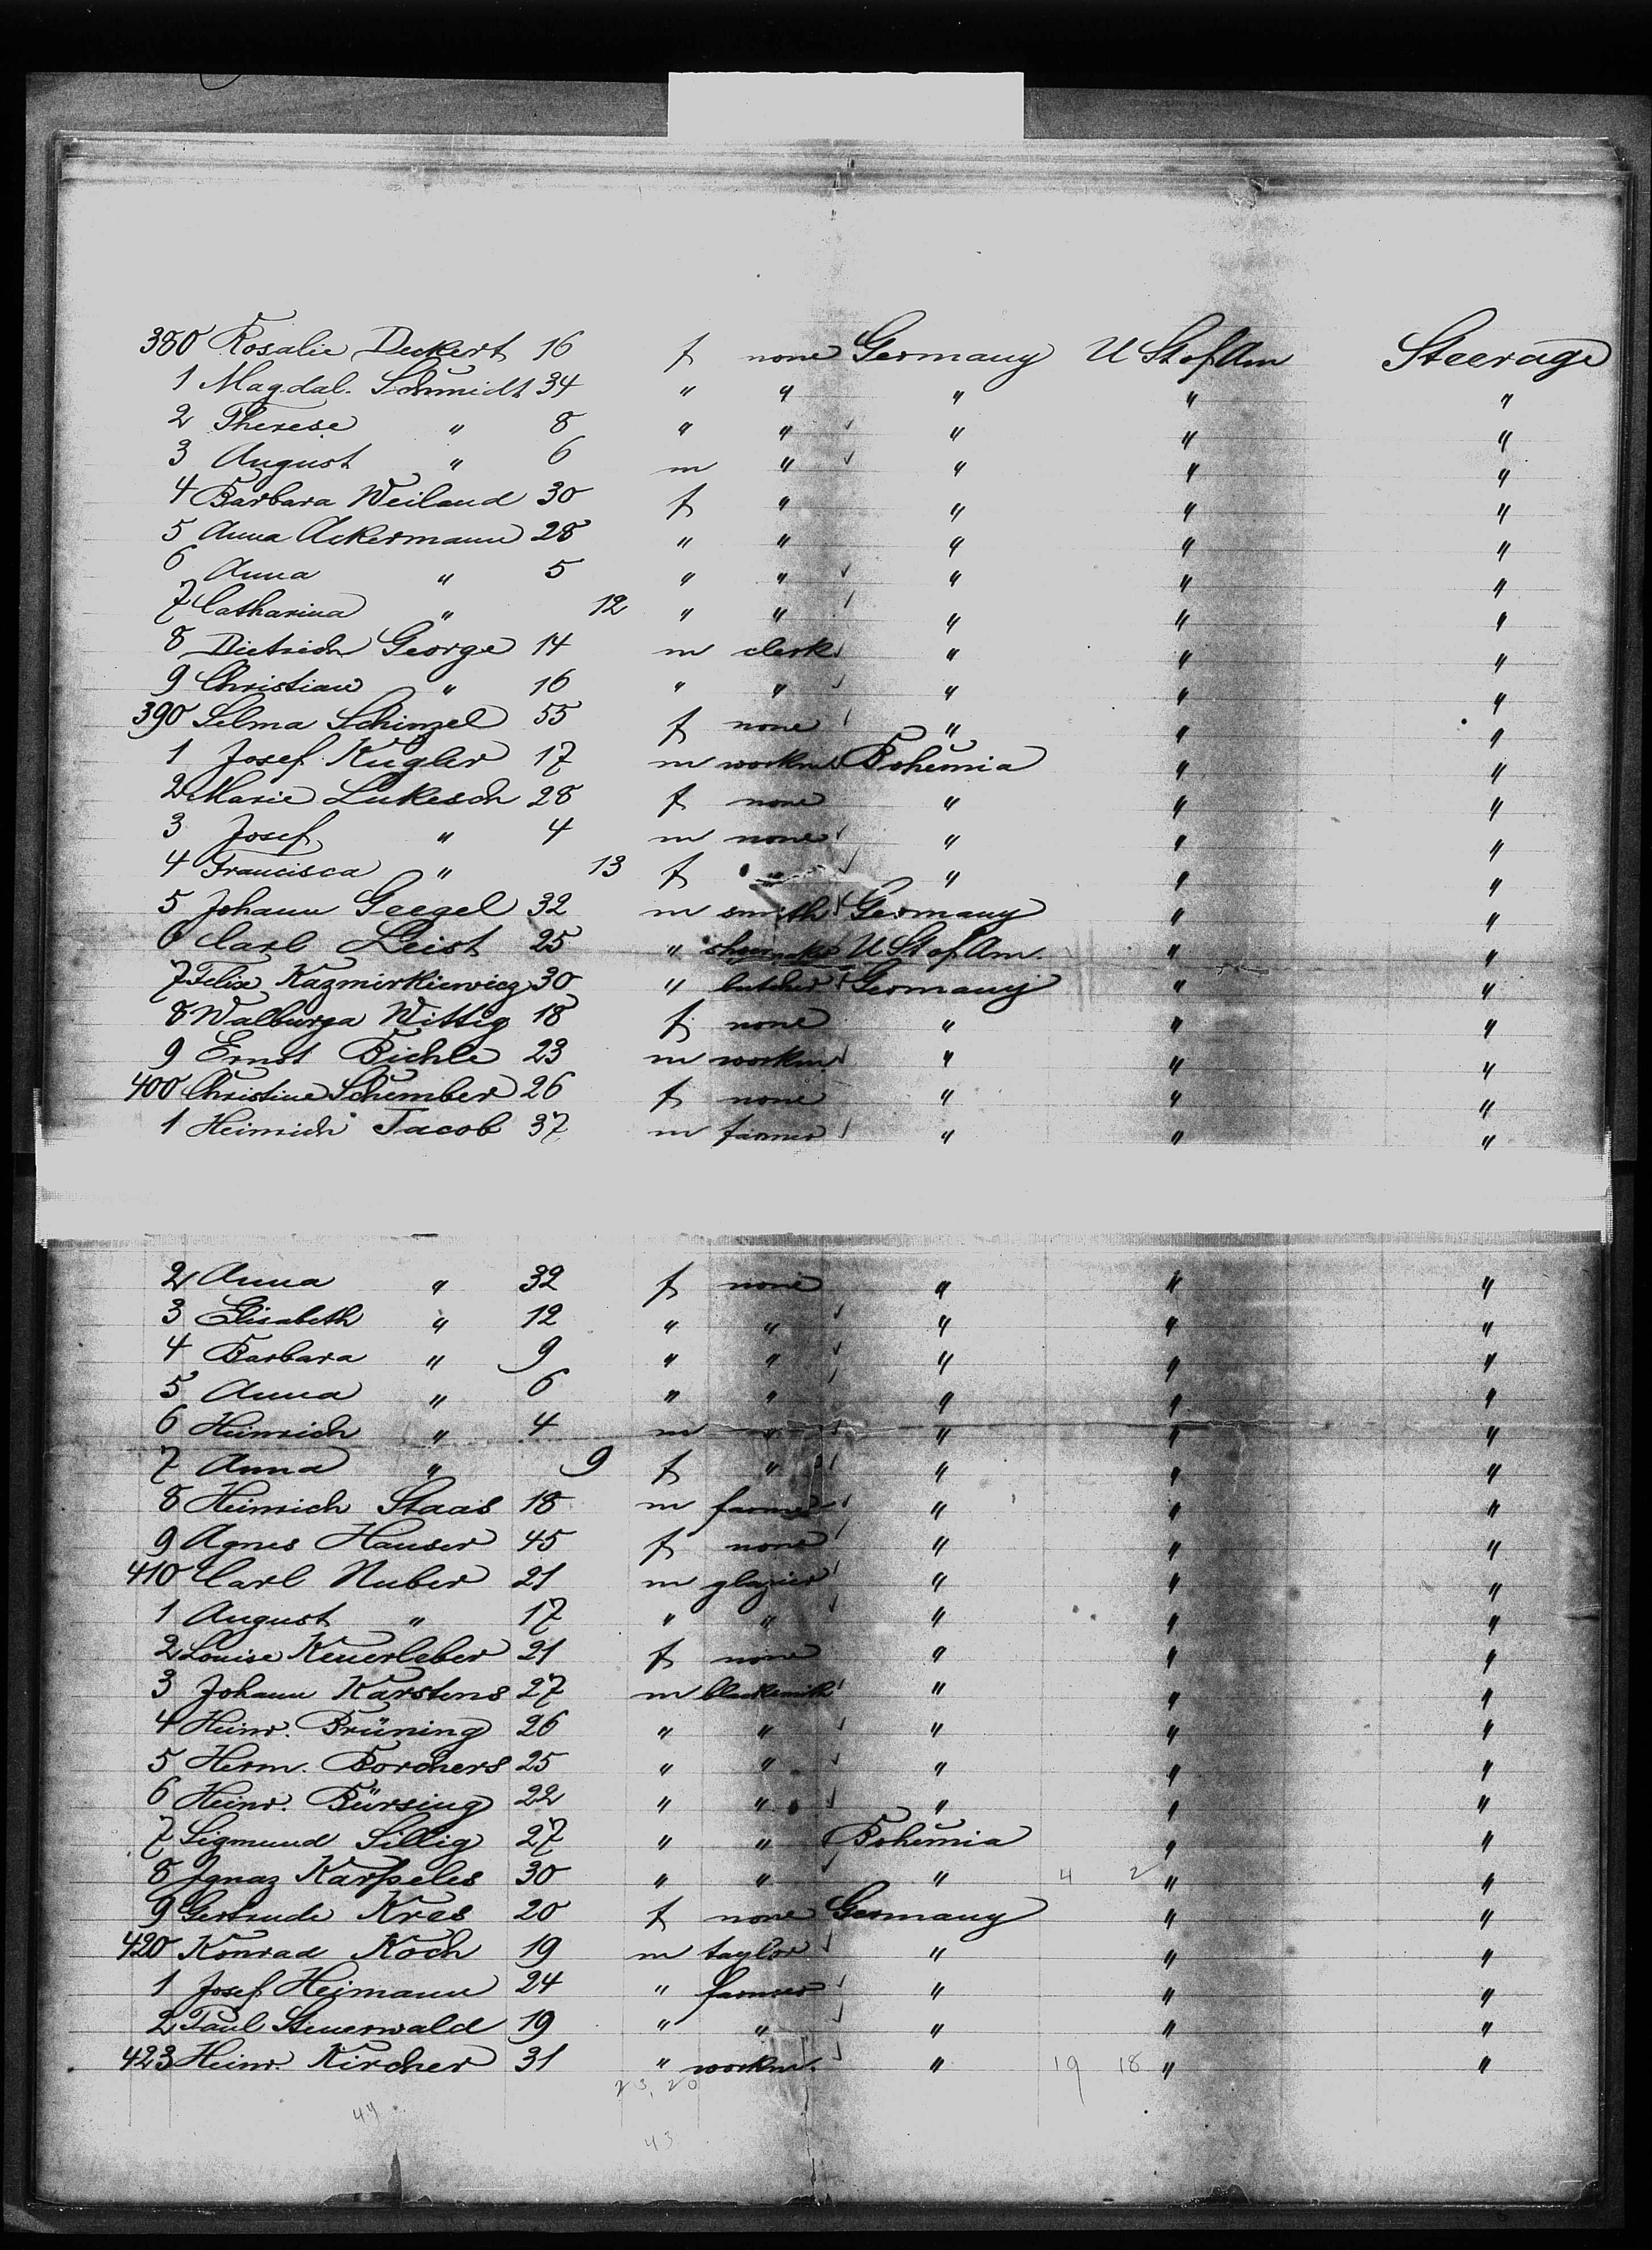 380 Rosalie Deckert 16 f none Germany U St of Am Steerage
1 Magdal. Schmidt 34 " " " " "
2 Therese " 8 " " " " "
3 August " 6 m " " " "
4 Barbara Weiland 30 f " " " "
5 Anna Ackermann 28 " " " " "
6 Anna " 5 " " " " "
7 Catharina " 12 " " " " "
8 Dietrich George 14 m clerk " " "
9 Christian " 16 " " " " "
390 Selma Schinzel 55 f none " " "
1 Josef Kugler 17 m workm. Bohemia " "
2 Marie Lukesch 28 f none " " "
3 Josef " 4 m none " " "
4 Francisca " 13 f " " " "
5 Johann Geegel 32 m smith Germany " "
6 Carl Leist 25 " shoemaker U St of Am. " "
7 Felix Kazmirkiewicz 30 " butcher Germany " "
8 Walburga Wittig 18 f none " " "
9 Ernst Bichle 23 m workm. " " "
400 Christine Schember 26 f none " " "
1 Heinrich Jacob 37 m farmer " " "
2 Anna " 32 f none " " "
3 Elisabeth " 12 " " " " "
4 Barbara " 9 " " " " "
5 Anna " 6 " " " " "
6 Heinrich " 4 m " " " "
7 Anna " 9 f " " " "
8 Heinrich Staas 18 m farmer " " "
9 Agnes Hauser 45 f none " " "
410 Carl Nuber 21 m glazier " " "
1 August " 17 " " " " "
2 Louise Keuerleber 21 f none " " "
3 Johann Karstens 27 m blacksmith " " "
4 Heinr. Brüning 26 " " " " "
5 Herm. Borchers 25 " " " " "
6 Heinr. Bürsing 22 " " " " "
7 Sigmund Sillig 27 " " Bohemia " "
8 Ignaz Karpeles 30 " " " 4 2 " "
9 Gertrude Kres 20 f none Germany " "
420 Konrad Koch 19 m taylor " " "
1 Josef Heimann 24 " farmer " " "
2 Paul Steuerwald 19 " " " " "
423 Heinr. Kircher 31 " workm. " 19 18 " "
23, 20
44
43